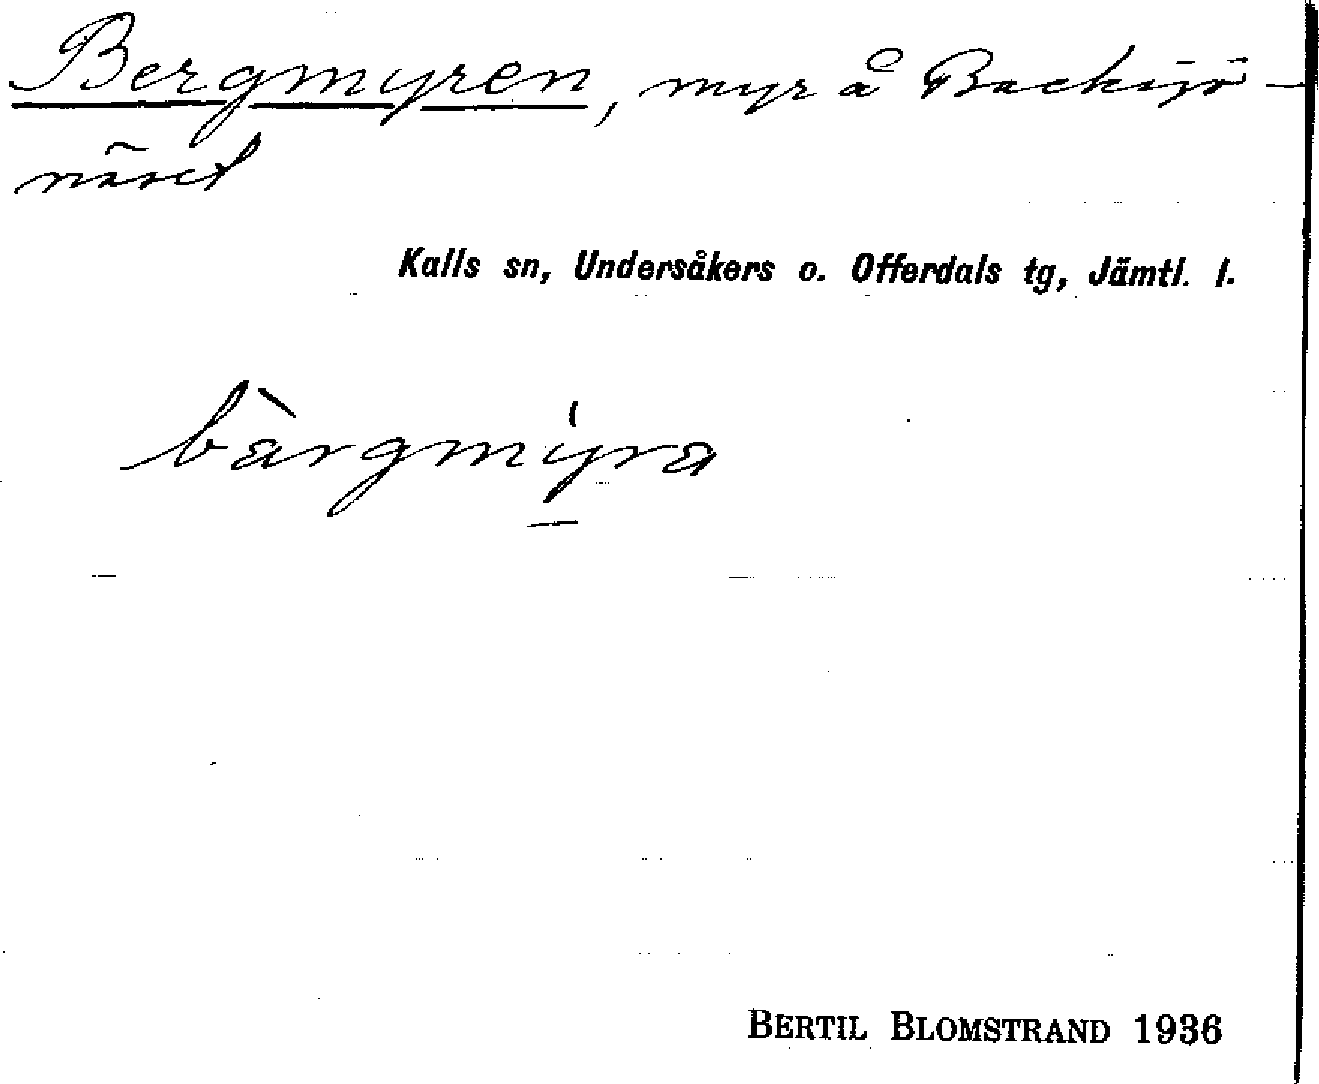 Bergmyren, myr å Backsjö-
näset
Kalls sn, Undersåkers o. Offerdals tg, Jämtl. l.
bàrgmýra
BERTIL BLOMSTRAND 1936